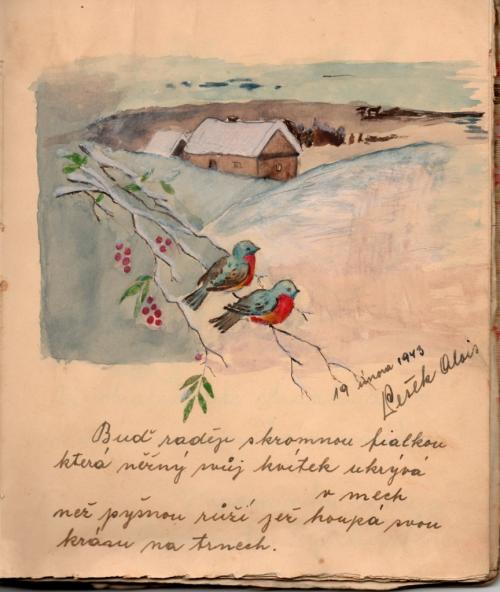 19 února 1943
Lešek Alois
Buď raději skromnou fialkou
která něžný svůj kvítek ukrývá
v mech
než pyšnou růží jež houpá svou
krásu na trnech.